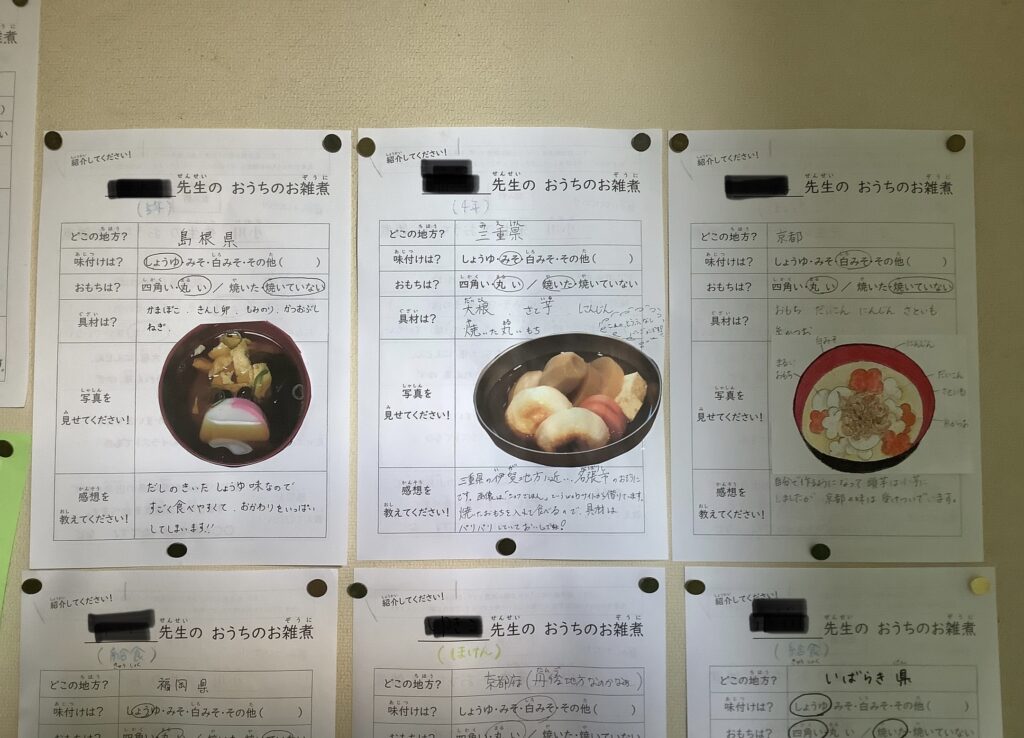 紹介してください!
先生の おうちのお雑煮
(5年)
どこの地方? 島根県
味付けは? しょうゆ・みそ・白みそ・その他( )
おもちは? 四角い・丸い / 焼いた・焼いていない
具材は? かまぼこ、きんし卵、もみのり、かつおぶし
ねぎ、
写真を
見せてください!
感想を
教えてください!
だしのきいた しょうゆ味なので
すごく食べやすくて、おかわりをいっぱい
してしまいます!!
紹介してください!
先生の おうちのお雑煮
(4年)
どこの地方? 三重県
味付けは? しょうゆ・みそ・白みそ・その他( )
おもちは? 四角い・丸い / 焼いた・焼いていない
具材は? 大根 さと芋 にんじん
焼いた丸いもち
写真を
見せてください!
感想を
教えてください!
三重県の伊賀地方に近い、名張市のおぞうに
です。画像は というサイトから借りています。
焼いたおもちを入れて食べるので、具材は
パリパリしていておいしいですね!
紹介してください!
先生の おうちのお雑煮
どこの地方? 京都
味付けは? しょうゆ・みそ・白みそ・その他( )
おもちは? 四角い・丸い / 焼いた・焼いていない
具材は? おもち だいこん にんじん さといも
糸かつお
写真を
見せてください!
白みそ
にんじん
まるい
おもち
だいこん
さといも
糸かつお
感想を
教えてください!
自分で作るようになって 頭芋は小芋に
しましたが 京都の味は 受けついでいます。
紹介してください!
先生の おうちのお雑煮
(給食)
どこの地方? 福岡県
味付けは? しょうゆ・みそ・白みそ・その他( )
おもちは? 四角い・丸い / 焼いた・焼いていない
紹介してください!
先生の おうちのお雑煮
(ほけん)
どこの地方? 京都府(丹後地方なのかなぁ)
味付けは? しょうゆ・みそ・白みそ・その他( )
おもちは? 四角い・丸い / 焼いた・焼いていない
紹介してください!
先生の おうちのお雑煮
(給食)
どこの地方? いばらき県
味付けは? しょうゆ・みそ・白みそ・その他( )
おもちは? 四角い・丸い / 焼いた・焼いていない